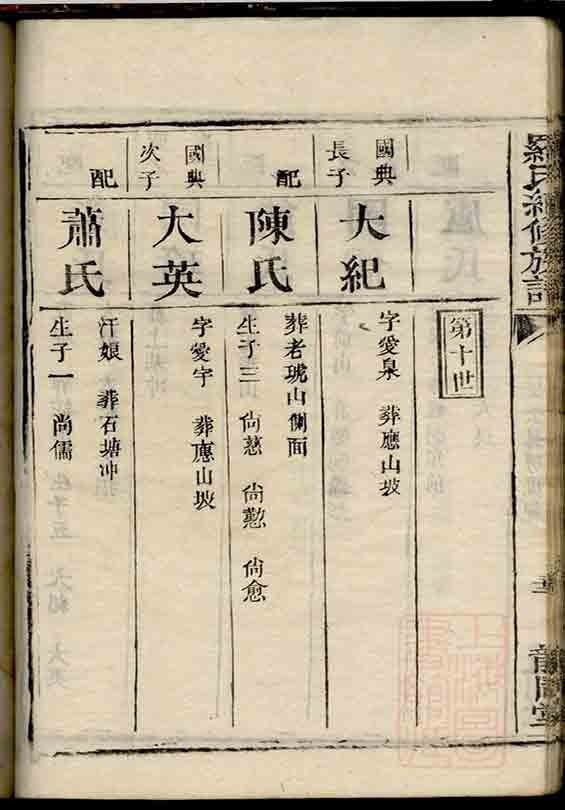 第十世
國典長子
大紀
字愛臬 葬應山坡
配
陳氏
葬老琥山側面
生子三 尙慈 尙懃 尙愈
國典次子
大英
字愛宇 葬應山坡
配
蕭氏
汗娘 葬石塘冲
生子一 尚儒
羅氏續修族譜